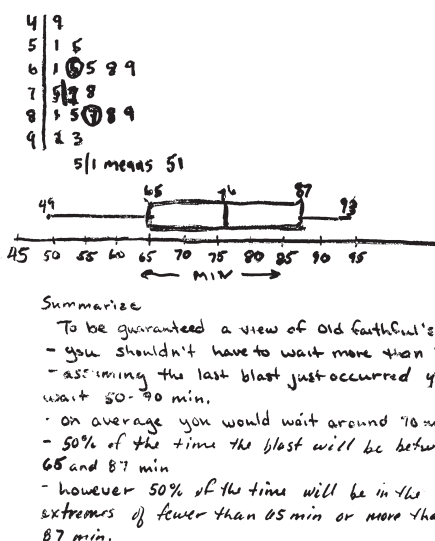 4 | 9
5 | 1 5
6 | 1 5 5 8 9
7 | 5 8
8 | 5 7 8 9
9 | 3
5/1 means 51
49 65 76 87 93
45 50 55 60 65 70 75 80 85 90 95
MIN
Summarize
To be guaranteed a view of Old faithful's
- you shouldn't have to wait more than
- assuming the last blast just occurred
wait 50-90 min.
- on average you would wait around
- 50% of the time the blast will be
65 and 87 min
- however 50% of the time will be in the
extremes of fewer than 65 min or more
87 min.